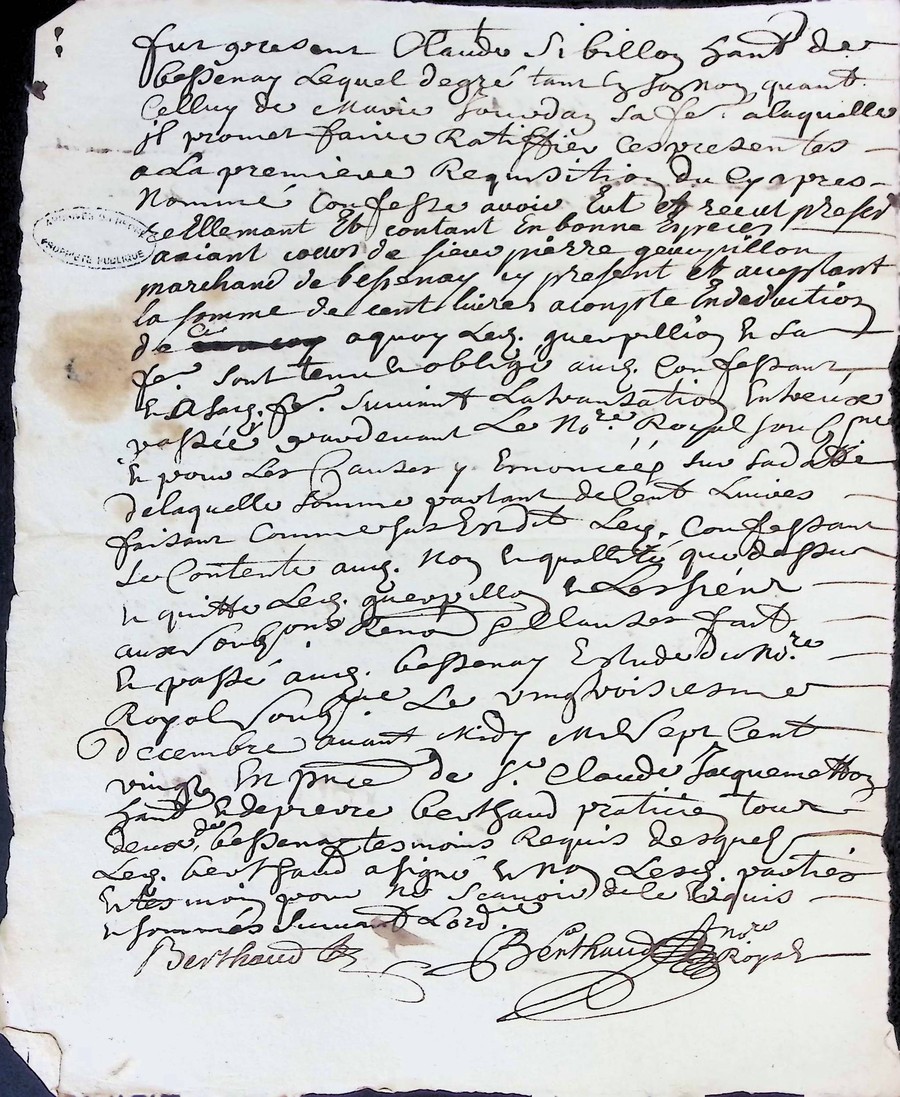 fut present Claude Sibillon habt de
bessenay Lequel degré tant En son nom quant
Celluy de Marie Jourdan sa fe. alaquelle
jl promet faire Ratiffier Cespresentes
a La premiere Requisition du Cy apres
Nommé Confesse avoir Eut et receut presen
reellemant Et contant En bonne Especes
aiant cours de sieur pierre guerpillon
marchand de bessenay cy present et aceptant
la somme de cent livres acompte En deduction
de Ce aquoy Led. guerpillion Et sa
fe. sont tenu Et obligé aud. Confessant
Et A sad. fe. Suivant La transation Entreux
passéé pardevant Le Nore. Royal sousigne
Et pour Les Causes y Ennoncéés sur sa datte
delaquelle somme partant de Cent Livres
faisant Comme sus Est dit Led. Confessant
se Contente aud. Nom Et quallité que dessus
Et quitte Led. guerpillon Et Les siens
aux Soubzons Renon Et Clauses fait
Et passé aud. bessenay Estude du Nore.
Royal Soubzne Le vingtroisiesme
decembre avant Midy Mil Sept Cent
vingt En pnce de Sr. Claude Jacquemetton
habt Et de pierre berthaud praticien tous
deux de bessenay tesmoins Requis desquels
Led. berthaud a signé Et Non Lesd. parties
Et tesmoin pour Ne Scavoir de ce Requis
Et sommés Suivant Lordce
Berthaud Berthaud nore
Royal
ARCHIVES DU RHÔNE
PROPRIÉTÉ PUBLIQUE